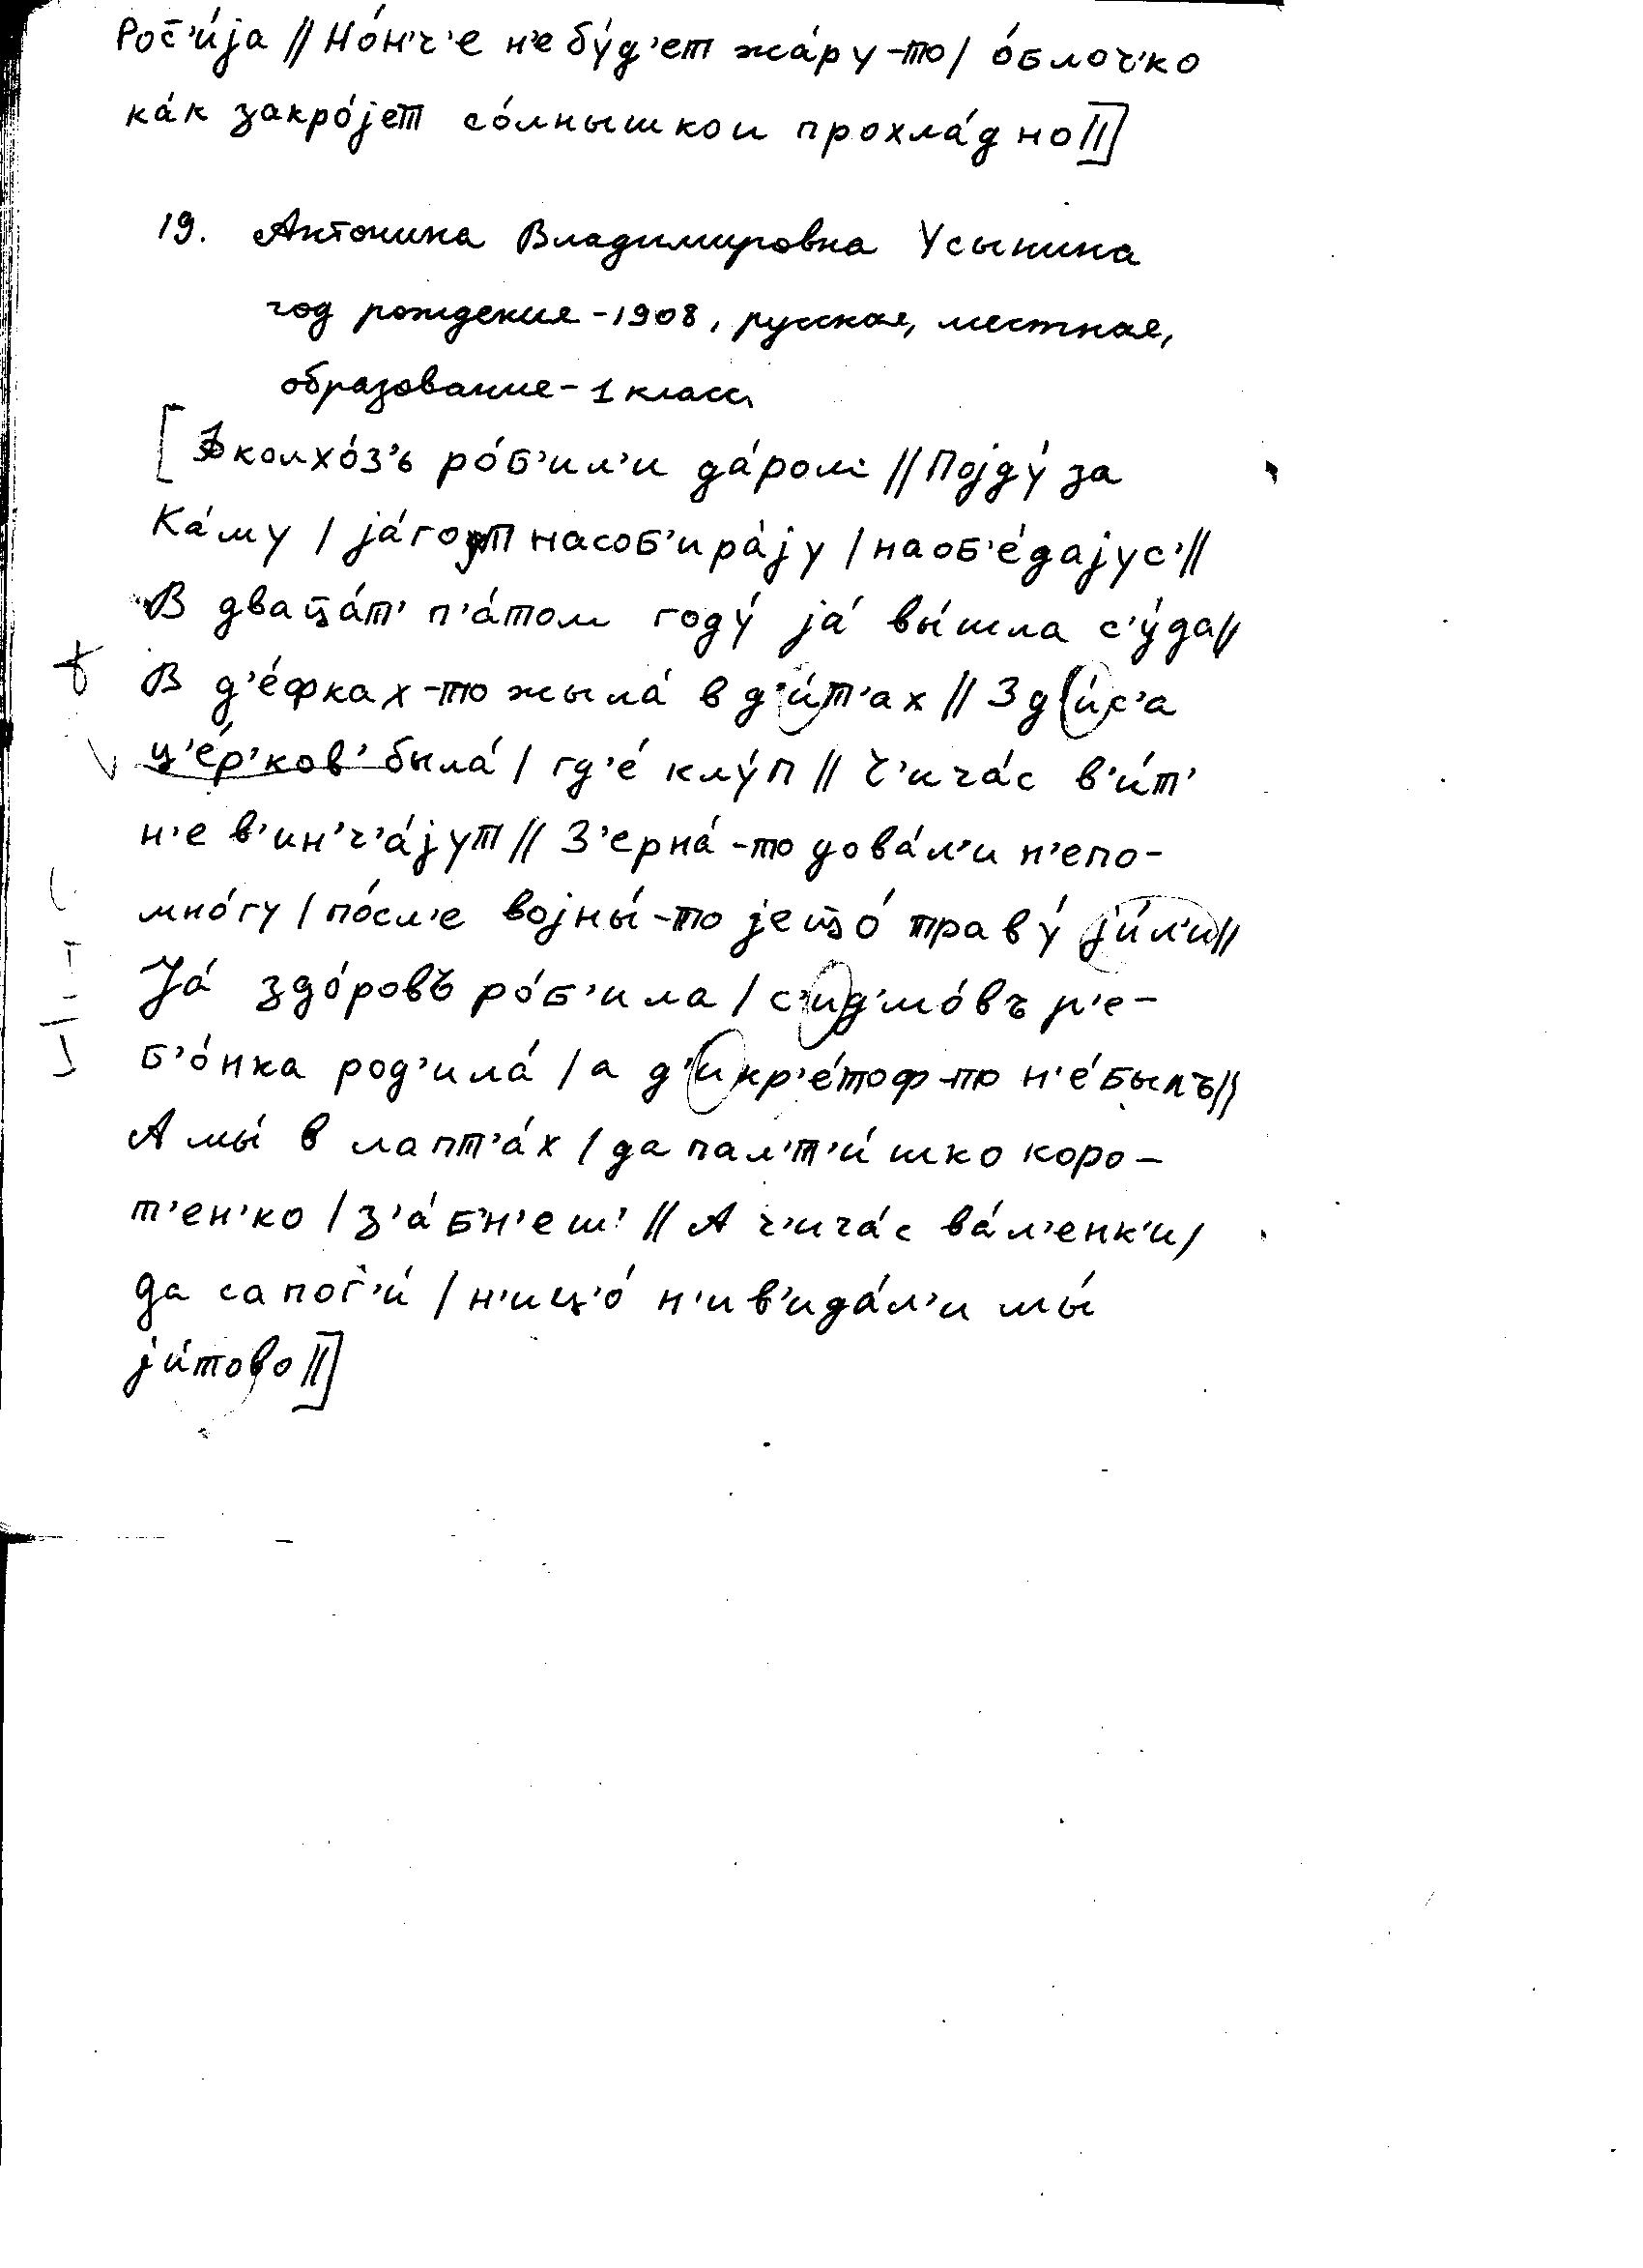 Рос̄'и́jа // Но́н'ч'е н'е бу́д'ет жа́ру-то / о́блоч'ко
ка́к закро́jет со́лнышко и прохла́дно //]
19. Антонина Владимировна Усынина
год рождения - 1908, русская, местная,
образование - 1 класс
[В колхо́з'ь ро́б'ил'и да́ром // Поjду́ за
Ка́му / jа́гот насоб'ира́jу / наоб'е́даjус' //
В двац̄а́т' п'а́том году́ jа́ вы́шла с'у́да //
В д'е́фках-то жыла́ в д'и́т'ах // Зд'и́с'а
ц'е́р'ков' была́ / гд'е́ клу́п // Ч'ича́с в'и́т'
н'е в'ин'ч'а́jут // З'ерна́-то дова́л'и н'епо-
мно́гу / по́сл'е воjны́-то jещ̄о́ траву́ jи́л'и //
Jа́ здо́ровъ ро́б'ила / с'ид'мо́въ р'е-
б'о́нка род'ила́ / а д'икр'е́тоф-то н'е́былъ //
А мы́ в лапт'а́х / да пал'т'и́шко коро-
т'ен'ко / з'а́б'н'еш' // А ч'ича́с ва́л'енк'и /
да сапог'и́ / н'иц'о́ н'ив'ида́л'и мы́
jи́тово //]